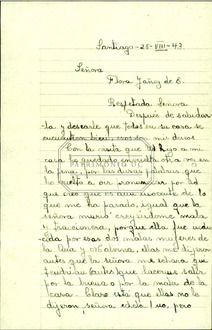 Santiago - 25 - VIII - 43.
Señora
Flora Yañez de E.
Respetada Señora
Después de saludar-
la y desearle que todos en su casa se
encuentren bien
Con la visita que Ud hizo a mi
casa he quedado enferma otra vez en
la pena, por las duras palabras que
he vuelto a oir pronunciar por lo
que creo que aun inocente de lo
que me ha pasado, igual que la
señora murió creyendome mala
y traicionera, porque ella fue indu-
cida por esas dos malas mujeres de
la Luisa y ellas me dijeron
antes que la señora me echara que
tendrian antes que hacerme salir
por la buena o por la mala de la
casa. Claro está que ellas no le
dijeron señora cedo luo, pero